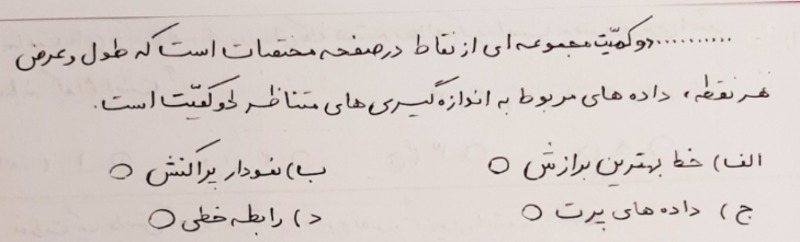 ..........دو کمیّت مجموعه ای از نقاط در صفحه مختصات است که طول و عرض
هر نقطه، داده های مربوط به اندازه گیری های متناظر دو کمیّت است.
الف) خط بهترین برازش ○ ب) نمودار پراکنش ○
ج) داده های پرت ○ د) رابطه خطی ○